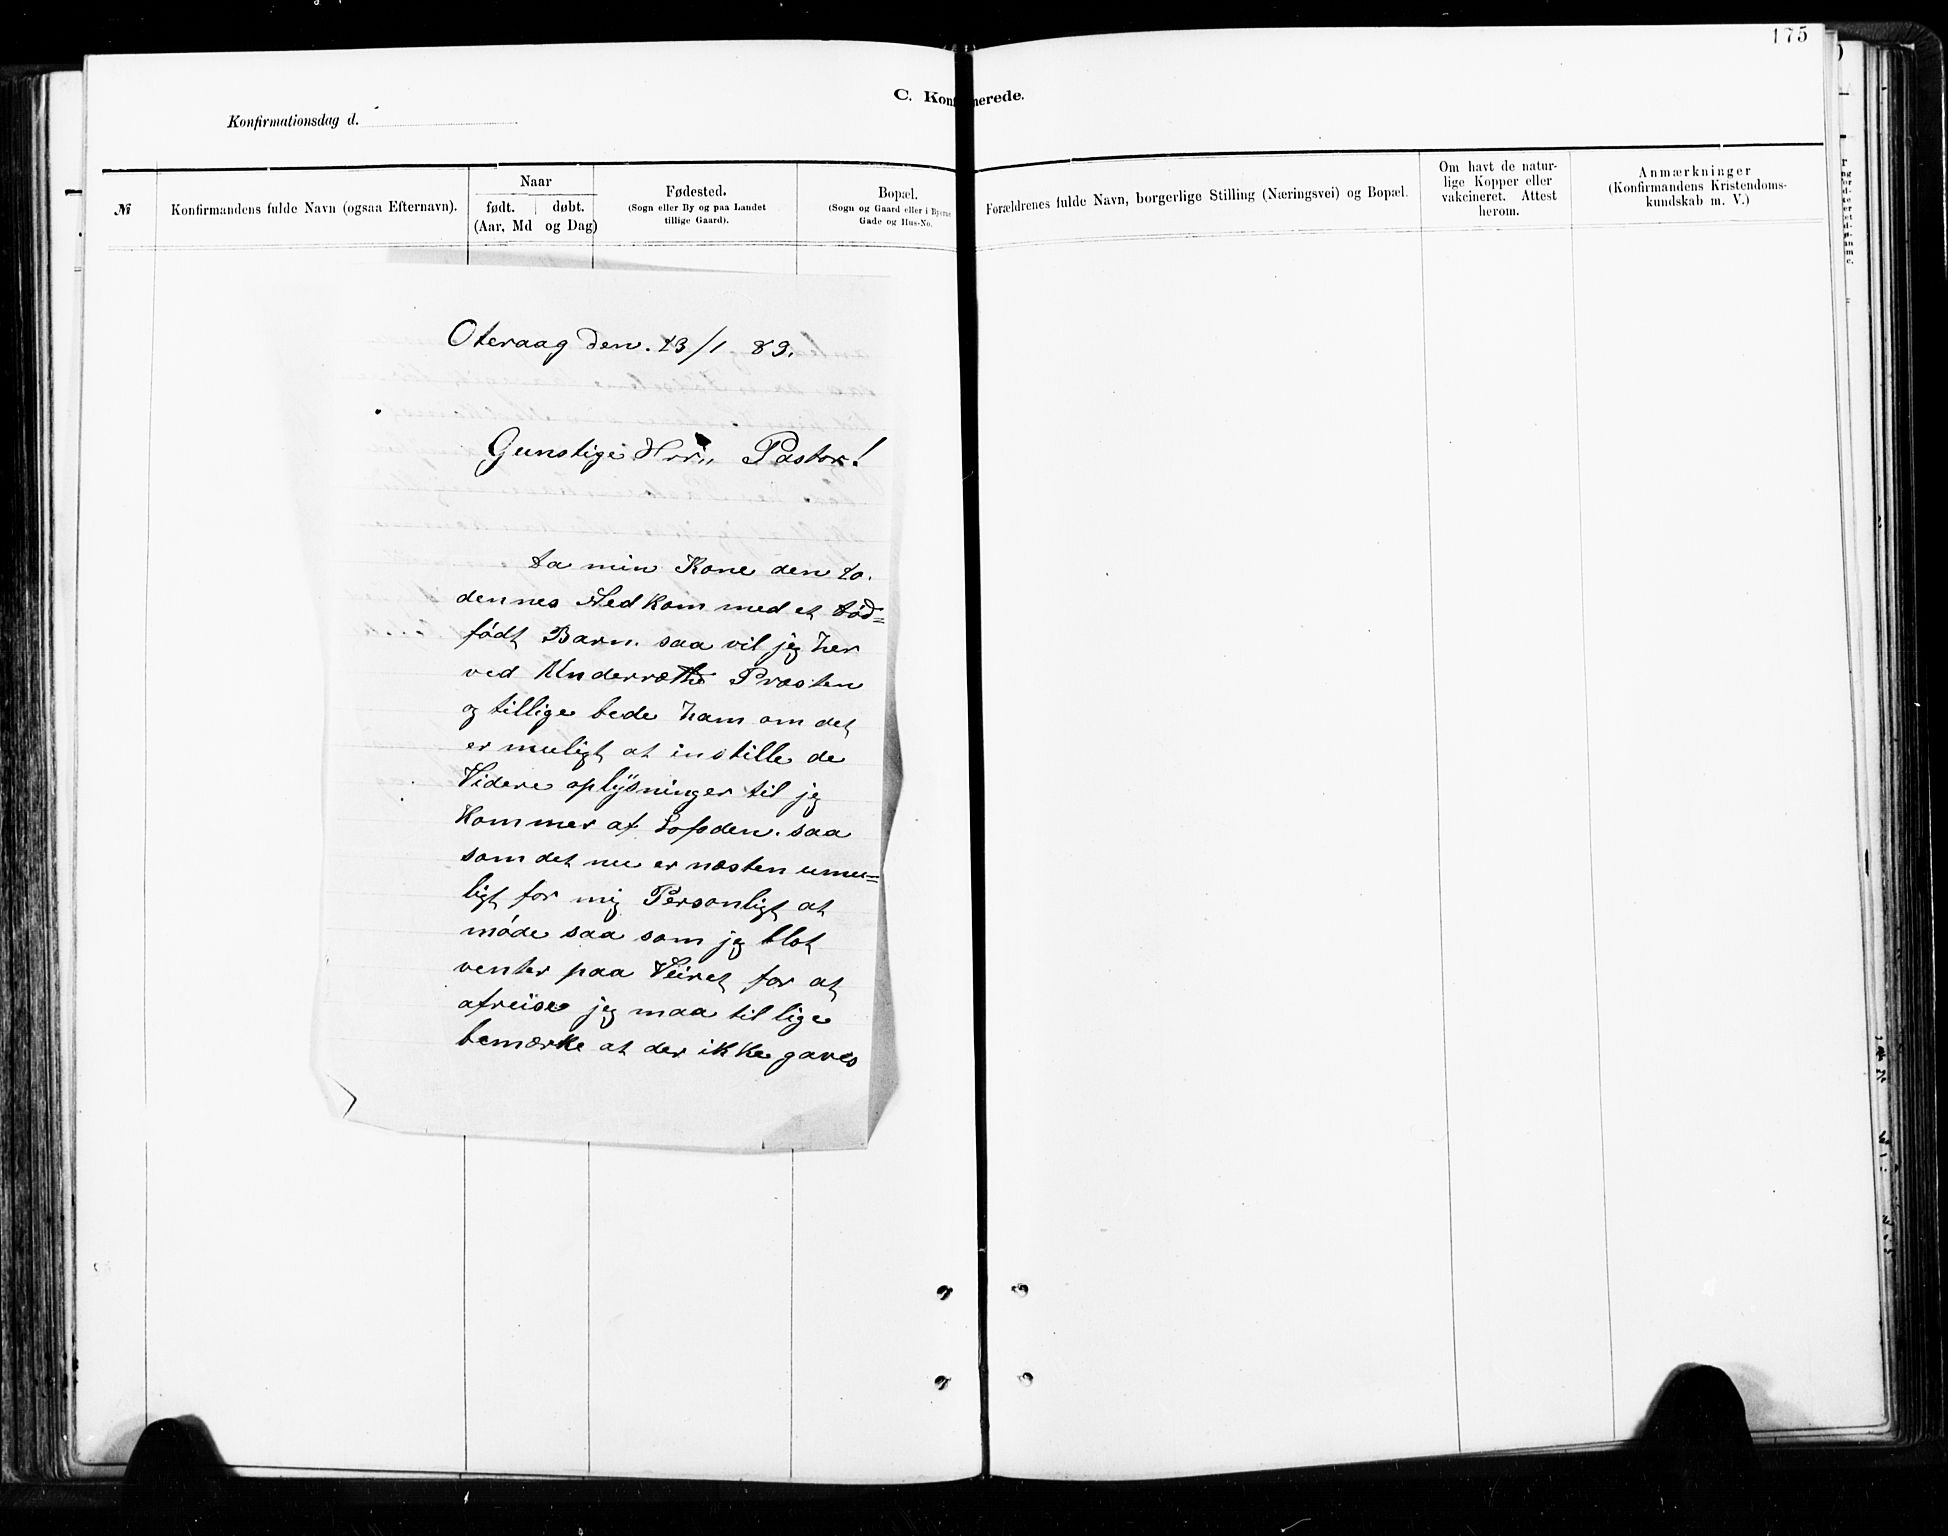 175
C. Konfirmerede.
Konfirmationsdag d.
№
Konfirmandens fulde Navn (ogsaa Efternavn).
Naar
født. døbt.
(Aar, Md og Dag)
Fødested.
(Sogn eller By og paa Landet
tillige Gaard).
Bopæl.
(Sogn og Gaard eller i Byerne
Gade og Hus-No.
Forældrenes fulde Navn, borgerlige Stilling (Næringsvei) og Bopæl.
Om havt de natur-
lige Kopper eller
vakcineret. Attest
herom.
Anmærkninger
(Konfirmandens Kristendoms-
kundskab m. V.)
Oteraag den. 23/1 89.
Gunstige Herr Pastor!
Da min Kone den 20.
dennes Nedkom med et Død=
født Barn. saa vil jeg her
ved Underrætte Præsten
og tillige bede ham om det
er muligt at instille de
Videre oplysninger til jeg
Kommer af Lofoden. saa
som det nu er næsten umu=
ligt for mig Personligt at
møde saa som jeg blot
venter paa Veiret for at
afreise jeg maa til lige
bemærke at der ikke gaves